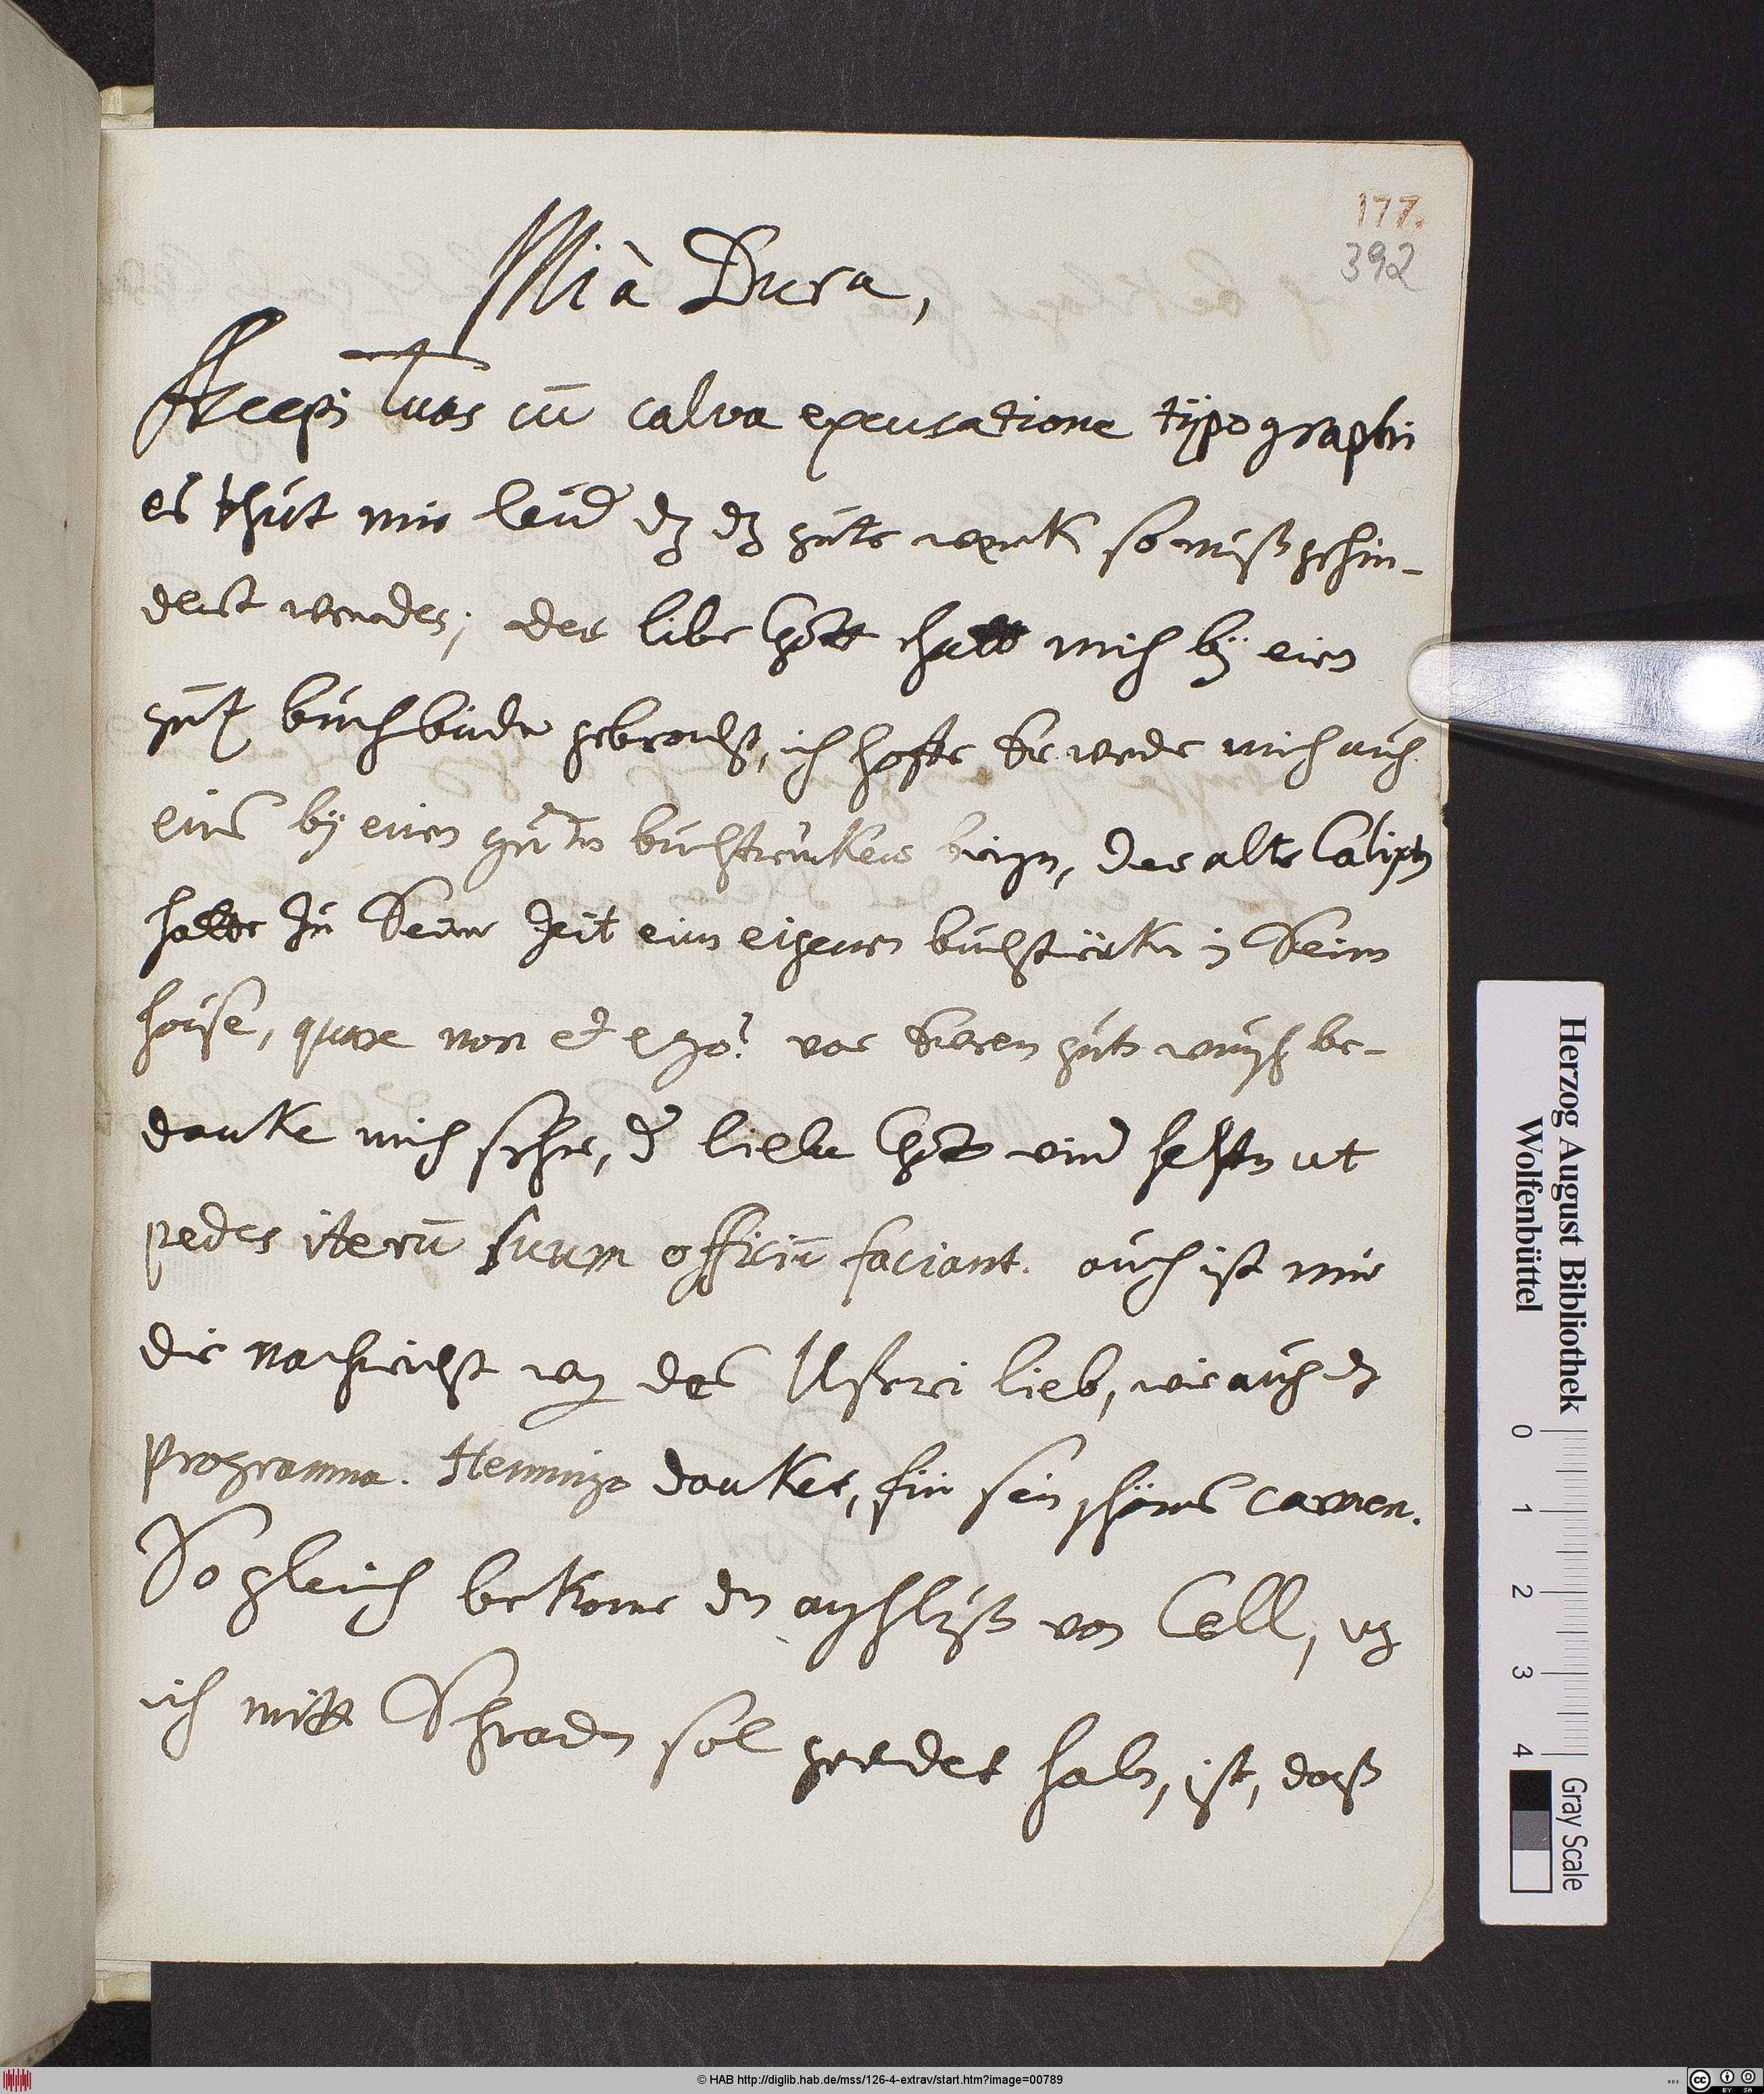 177.
392
Mià Dura,
Accepi tuas cū calva excusatione typographi
es thut mir leid dz dz gute werk so muß gehin-
dert werden; der libe Gott hatt mich bÿ eien
gutē buchbinder gebracht, ich hoffe Er werde mich auch
eins bÿ einen guten buchtrucker bringen, der alte Calixtus
hatte zu Seiner Zeit einen eigenen buchtrücker in Seinem
hause, quare non et ego? vor Eweren guten wunsch be-
danke mich sehr, der liebe Gott wird helfen ut
pedes iterū suum officiū faciant. auch ist mir
die nachricht weg des Usseri lieb, wie auch dz
programma. Henningo danket, für sein schönes carmen.
So gleich bekome den aufschluß von Cell, wz
ich mitt Schradern sol geredet haben, ist, daß
Herzog August Bibliothek
Wolfenbüttel
0 1 2 3 4
Gray Scale
© HAB http://diglib.hab.de/mss/126-4-extrav/start.htm?image=00789